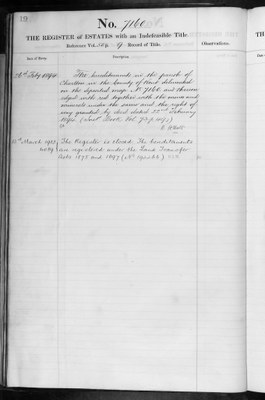 191
No. 7160
THE REGISTER of ESTATES with an Indefeasible Title
Reference Vol. 9. Record of Title.
Observations.
Date of Entry.
Description
The hereditaments in the parish of
Charlton in the County of Kent delineated
on the deposited map No 7160 and thereon
edged with red together with the mines and
minerals under the same and the right of
way granted by deed dated 22nd February
March 1903
The Register is closed. The hereditaments
are registered under the Land Transfer
Acts 1875 and 1897